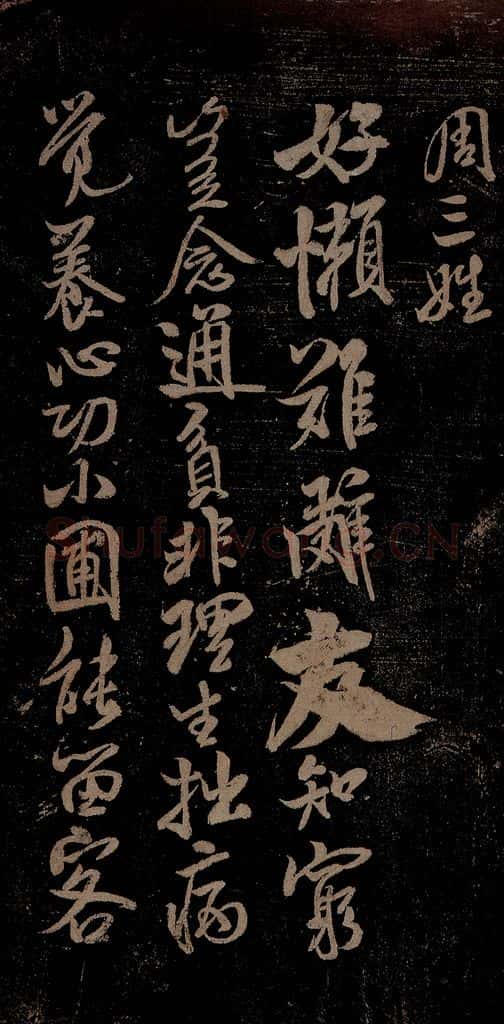 周三姓
好懶難辭友知窮
豈念通貧非理生拙病
覺養心功小圃能留客
Shufawang.CN